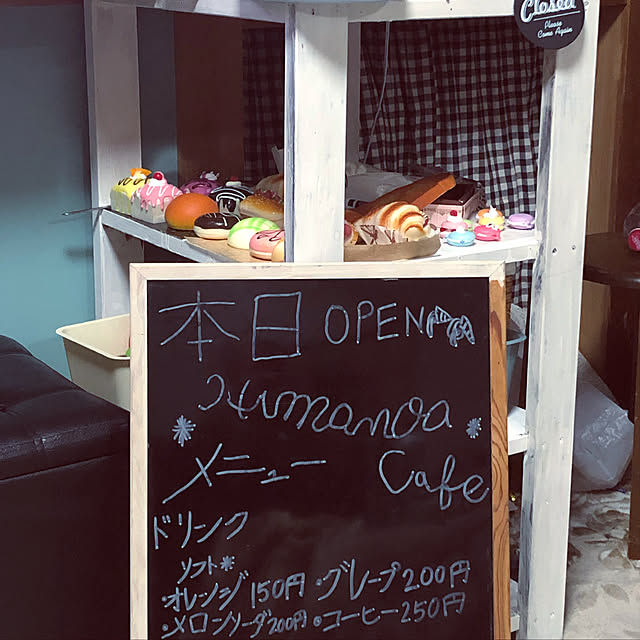 Closed
Please
Come Again
本日 OPEN
Humanoa
メニュー Cafe
ドリンク
ソフト*
・オレンジ 150円 ・グレープ 200円
・メロンソーダ 200円 ・コーヒー 250円